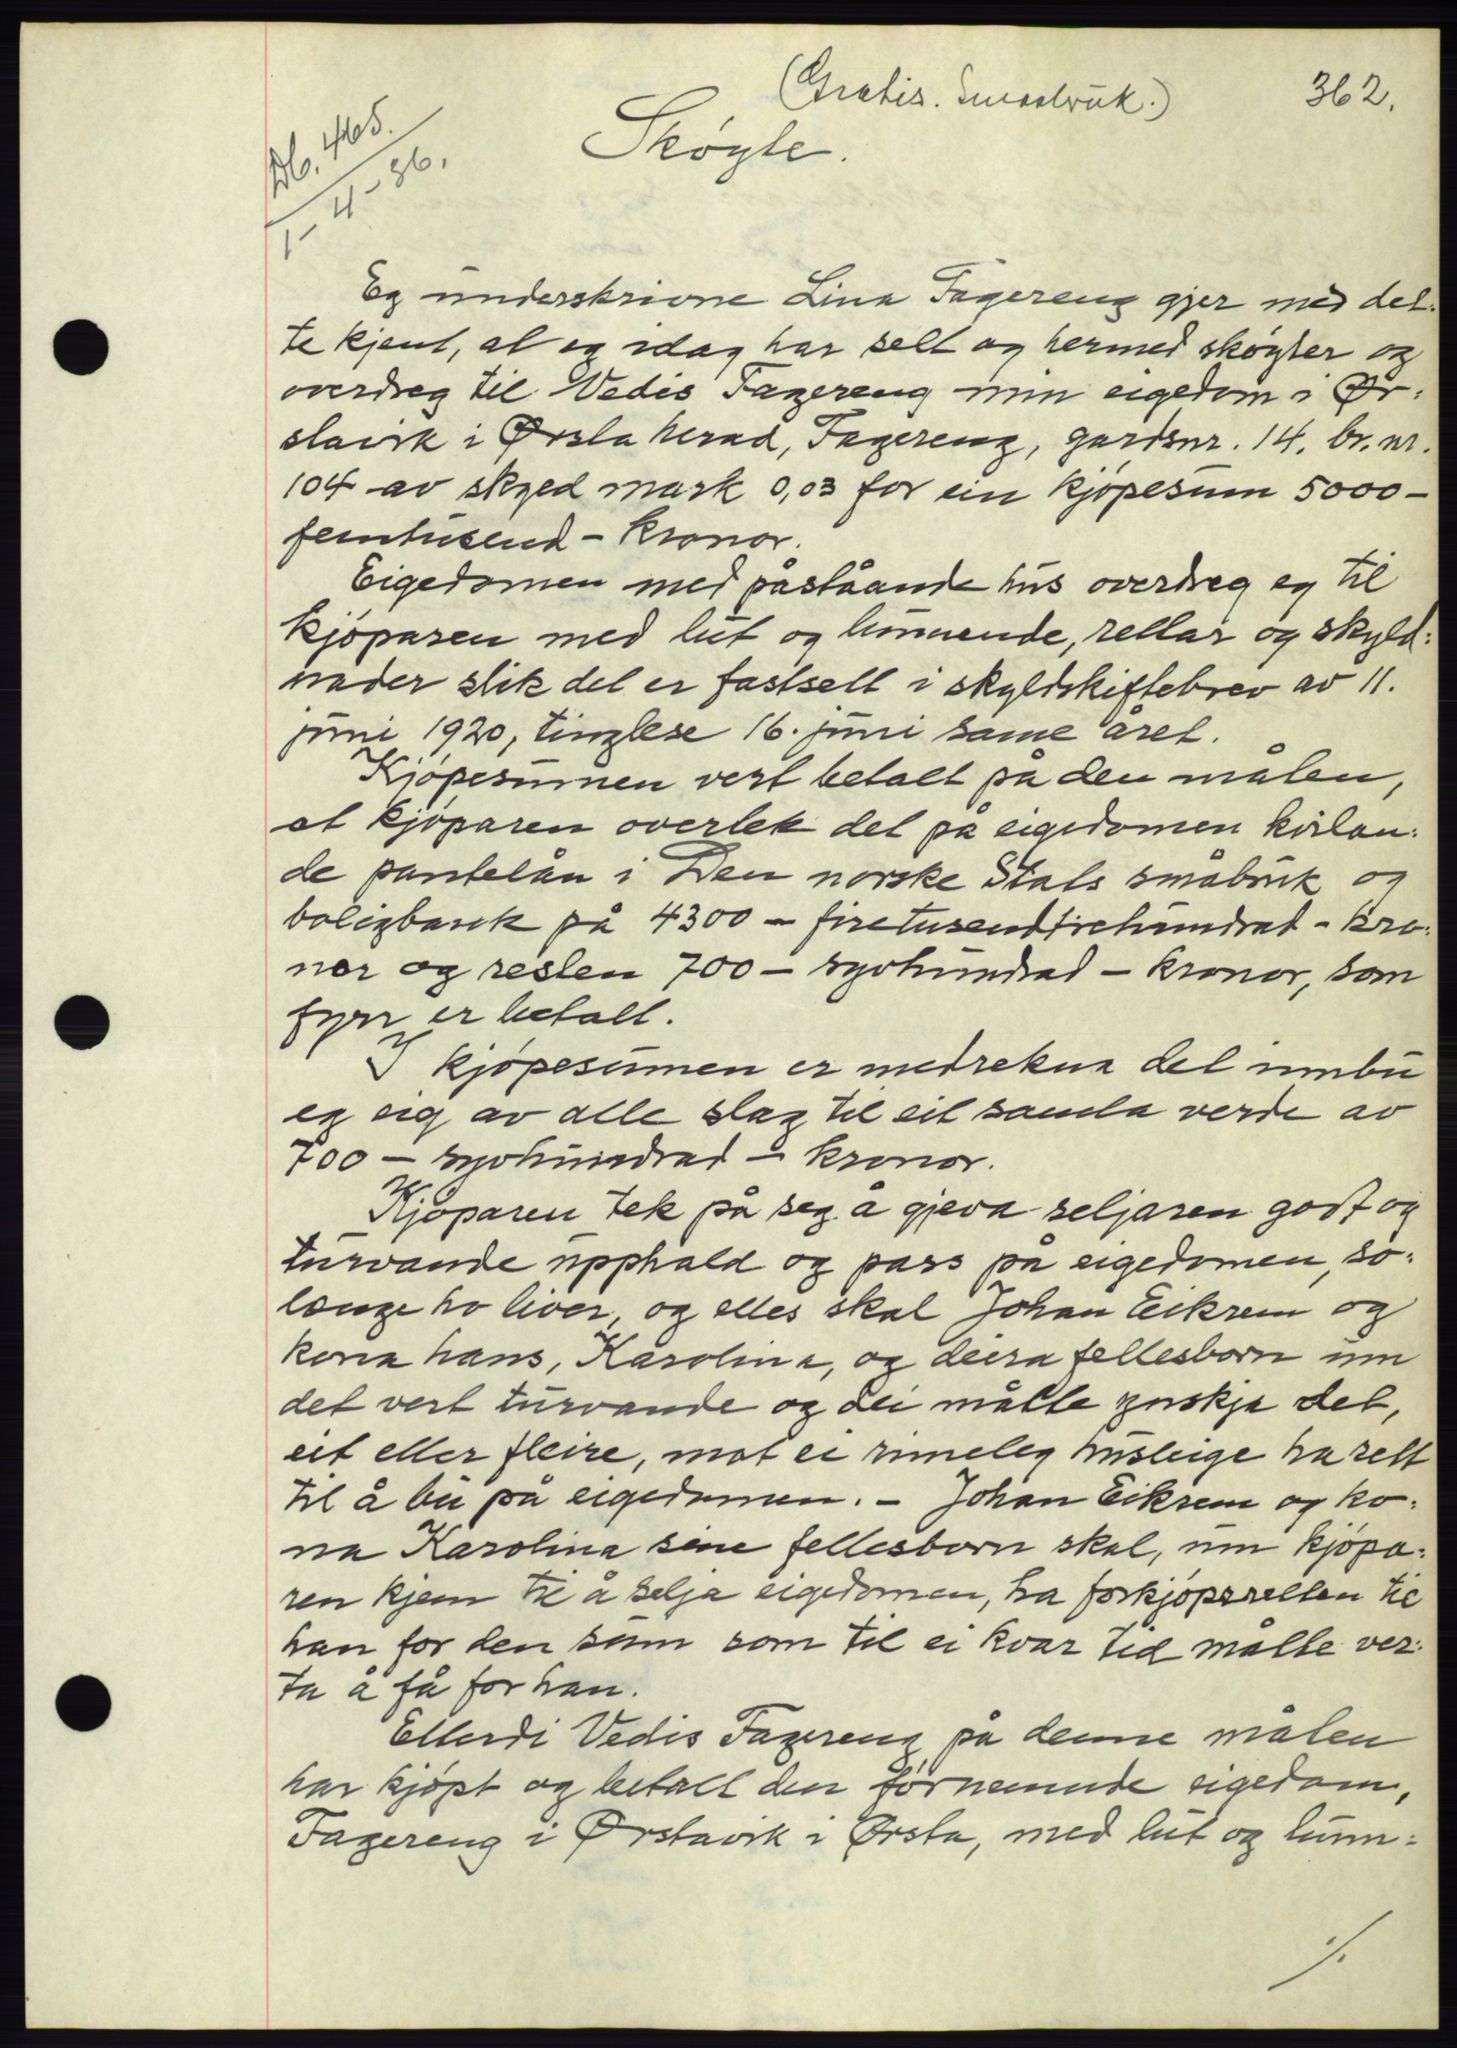 (Gratis. Småbruk.) 362.
Skøyte.
Db. 465.
1-4-36.
Eg underskrivne Lina Fagereng gjer med det-
te kjent, at eg idag har selt og hermed skøyter og
overdreg til Vedis Fagereng min eigedom i Ør-
stavik i Ørsta herad, Fagereng, gardsnr. 14. br. nr.
104 av skyld mark 0,03 for ein kjøpesum 5000 -
femtusend - kronor.
Eigedomen med påståande hus overdreg eg til
kjøparen med lut og lunnende, rettar og skyld-
nader slik det er fastsett i skyldskiftebrev av 11.
juni 1920, tinglese 16. juni same året.
Kjøpesumen vert betalt på den måten,
at kjøparen overtek det på eigedomen kvilan-
de pantelån i Den norske Stats småbruk og
boligbank på 4300 - firetusendtrehundrad - kro-
nor og resten 700 - syvhundrad - kronor, som
fyrr er betalt.
I kjøpesumen er medrekna det innbu
eg eig av alle slag til eit samla verde av
700 - syvhundrad - kronor.
Kjøparen tek på seg å gjeva seljaren godt og
turvande upphald og pass på eigedomen, so-
længe ho liver, og elles skal Johan Eikrem og
kona hans, Karolina, og deira fellesborn um
det vert turvande og dei måtte ynskja det,
eit eller fleire, mot ei rimeleg husleige ha rett
til å bu på eigedomen. - Johan Eikrem og ko-
na Karolina sine fellesborn skal, um kjøpa-
ren kjem til å selja eigedomen, ha forkjøpsretten til
han for den sum som til ei kvar tid måtte ver-
ta å få for han.
Ettersdi Vedis Fagereng på denne måten
har kjøpt og betalt den førnemnde eigedom,
Fagereng i Ørstavik i Ørsta, med lut og lunn-
./.